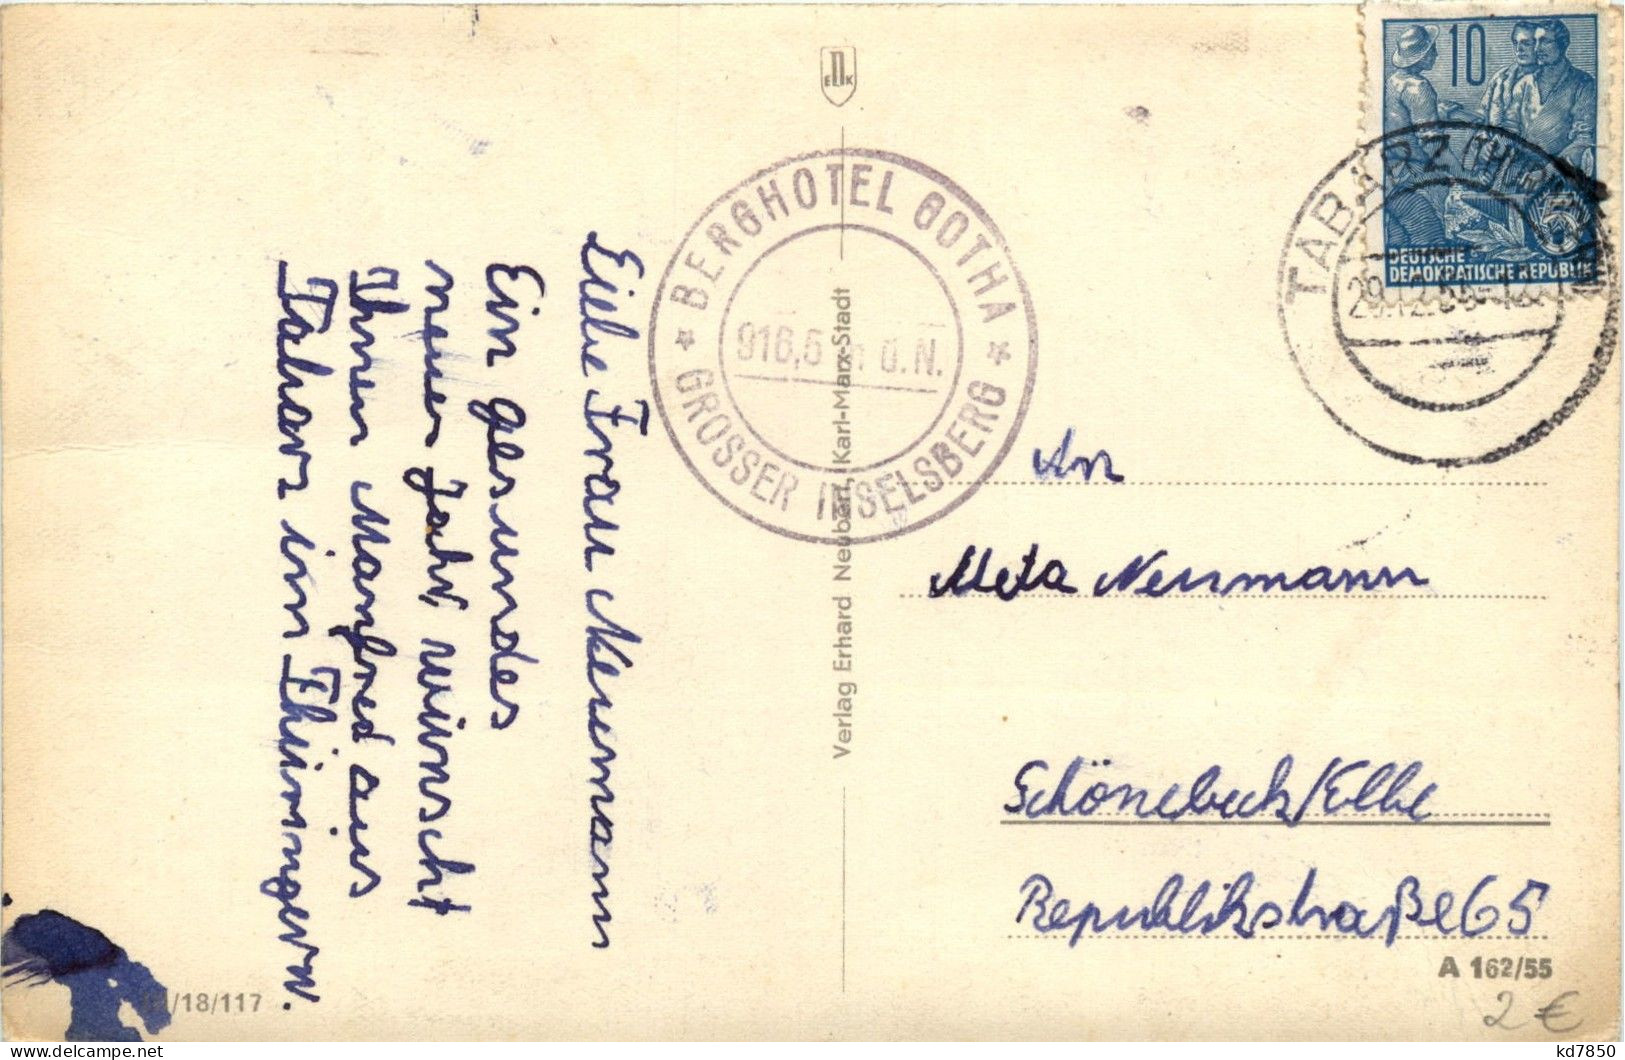 Liebe Frau Neumann
Ein gesundes
neues Jahr wünscht
Ihnen Manfred aus
Tabarz im Thüringerw.
/18/117
ENK
BERGHOTEL GOTHA
916,5 m ü.N.
GROSSER INSELSBERG
Verlag Erhard Neubert, Karl-Marx-Stadt
10
DEUTSCHE
DEMOKRATISCHE REPUBLIK
TABARZ (THÜR
29.12.55-12
An
Meta Neumann
Schönebeck/Elbe
Republikstraße 65
A 162/55
2 €
kd7850